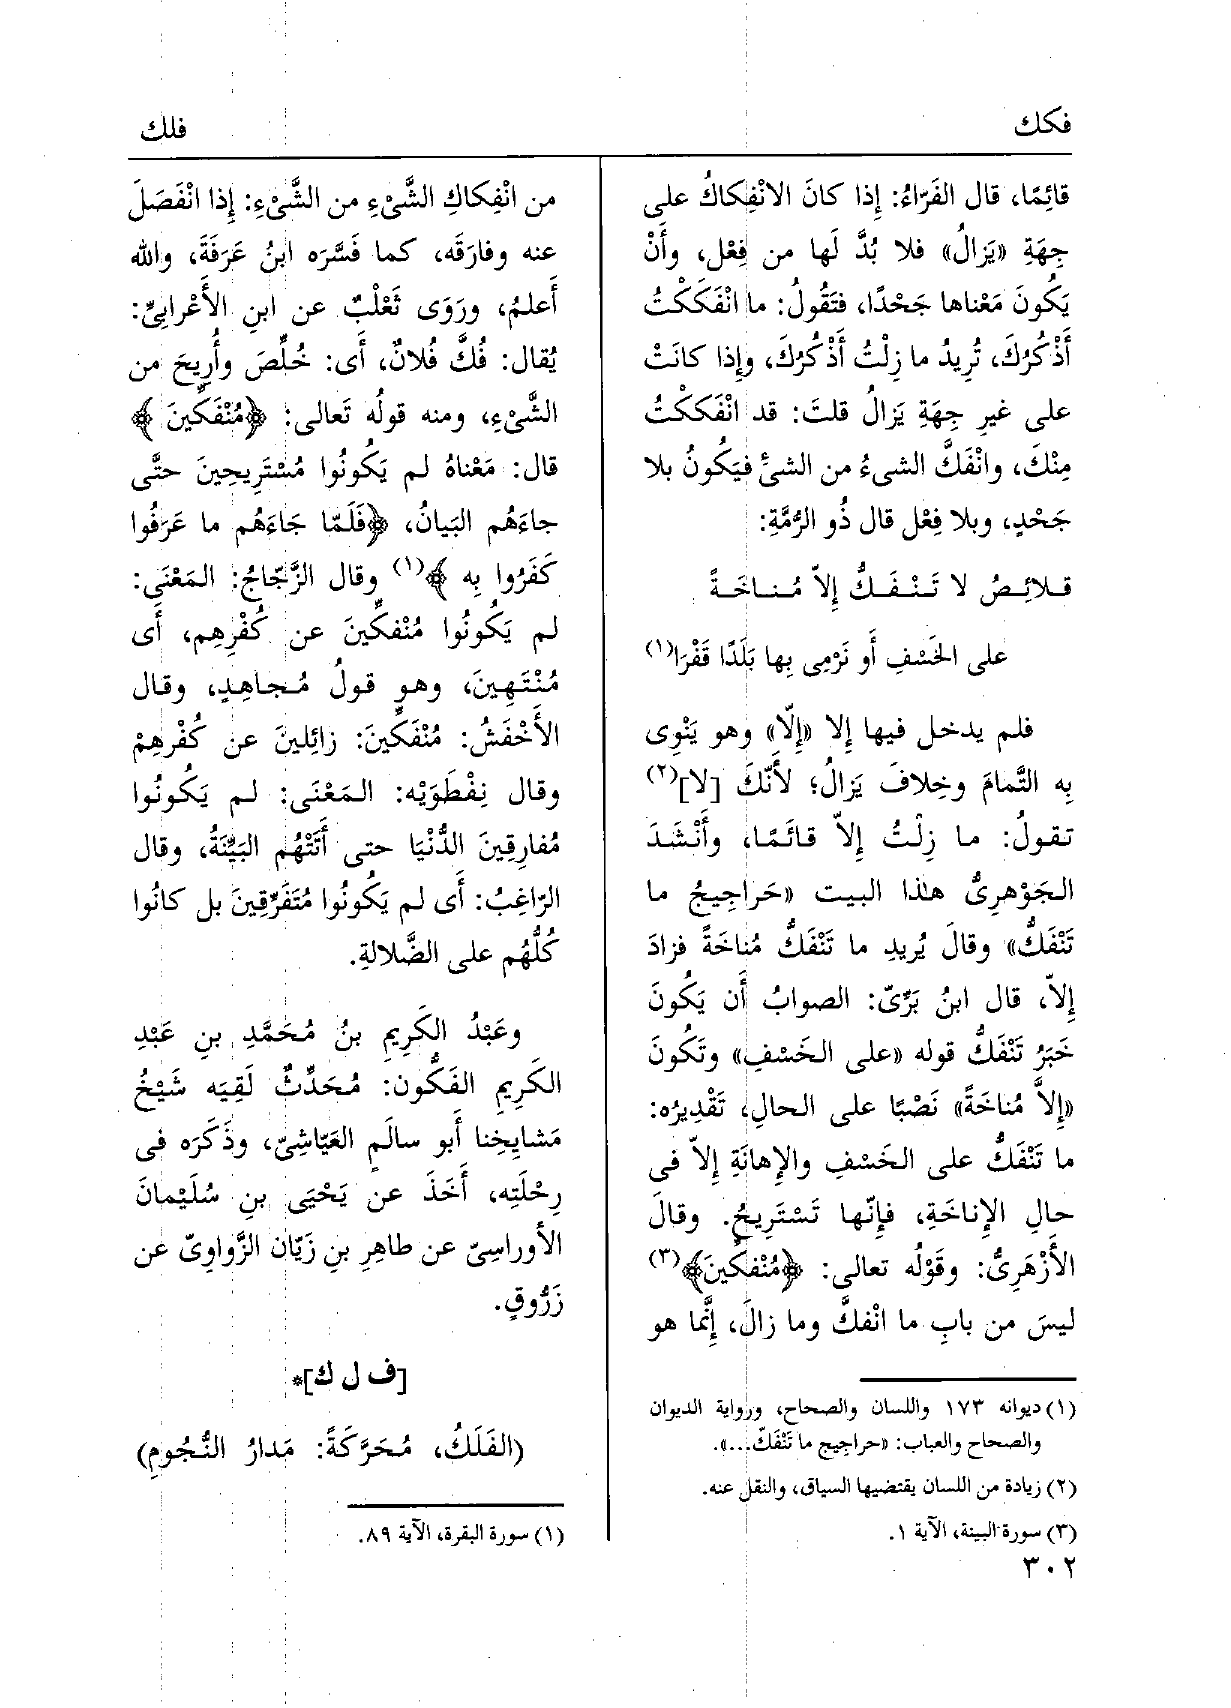 فكك
فلك
قائِمًا، قال الفَرّاءُ: إِذا كانَ الانْفِكاكُ على
جِهَةِ «يَزالُ» فلا بُدَّ لَها من فِعْل، وأَنْ
يَكُونَ مَعْناها جَحْدًا، فتَقُولُ: ما انْفَكَكْتُ
أَذْكُرُكَ، تُرِيدُ ما زِلْتُ أَذْكُرُكَ، وإِذا كانَتْ
على غيرِ جِهَةِ يَزالُ قلتَ: قد انْفَكَكْتُ
مِنْكَ، وانْفَكَّ الشىءُ من الشئِ فيَكُونُ بلا
جَحْدٍ، وبلا فِعْل قال ذُو الرُّمَّةِ:
قـلائِـصُ لا تَـنْـفَـكُّ إِلاّ مُـنـاخَـةً
على الخَسْفِ أَو نَرْمِى بِها بَلَدًا قَفْرَا(١)
فلم يدخل فيها إلا «إِلّا» وهو يَنْوِى
بِه التَّمامَ وخِلافَ يَزالُ؛ لأَنّكَ [لا](٢)
تقولُ: ما زِلْتُ إِلاّ قائَمًا، وأَنْشَدَ
الجَوْهرِىُّ هٰذا البيت «حَراجِيجُ ما
تَنْفَكُّ» وقالَ يُريدِ ما تَنْفَكُّ مُناخَةً فزادَ
إِلاّ، قال ابنُ بَرِّىّ: الصوابُ أَن يَكُونَ
خَبَرُ تَنْفَكُّ قوله «على الخَسْفِ» وتَكُونَ
«إِلاَّ مُناخَةً» نَصْبًا على الحالِ، تَقْدِيرُه:
ما تَنْفَكُّ على الخَسْفِ والإِهانَةِ إِلاّ فى
حالِ الإِناخَةِ، فإِنّها تَسْتَرِيحُ. وقالَ
الأَزْهَرِىُّ: وقَوْلُه تعالى: ﴿مُنْفكِّينَ﴾(٣)
ليسَ من بابِ ما انْفكَّ وما زالَ، إِنَّما هو
(١) ديوانه ١٧٣ واللسان والصحاح، ورواية الديوان
والصحاح والعباب: «حراجيج ما تَنْفَكّ...».
(٢) زيادة من اللسان يقتضيها السياق، والنقل عنه.
(٣) سورة البينة، الآية ١.
٣٠٢
من انْفِكاكِ الشَّىْءِ من الشَّىْءِ: إِذا انْفَصَلَ
عنه وفارَقَه، كما فَسَّرَه ابنُ عَرَفَةَ، والله
أَعلمُ، ورَوَى ثَعْلَبٌ عن ابنِ الأَعْرابِىِّ:
يُقال: فُكَّ فُلانٌ، أَى: خُلِّصَ وأُرِيحَ من
الشَّىْءِ، ومنه قولُه تَعالى: ﴿مُنْفَكِّينَ﴾
قال: مَعْناهُ لم يَكُونُوا مُسْتَرِيحِينَ حتَّى
جاءَهُم البَيانُ، ﴿فَلَمّا جَاءَهُم ما عَرَفُوا
كَفَرُوا بِه﴾(١) وقال الزَّجّاجُ: المَعْنَى:
لم يَكُونُوا مُنْفكِّينَ عن كُفْرِهِم، أَى
مُنْتَهِينَ، وهو قولُ مُجاهِدٍ، وقال
الأَخْفَشُ: مُنْفَكِّينَ: زائِلينَ عن كُفْرِهِمْ
وقال نِفْطَوَيْه: المَعْنَى: لم يَكُونُوا
مُفارِقِينَ الدُّنْيَا حتى أَتَتْهُم البَيِّنَةُ، وقال
الرّاغِبُ: أَى لم يَكُونُوا مُتَفَرِّقِينَ بل كانُوا
كُلُّهُم على الضَّلالةِ.
وعَبْدُ الكَرِيمِ بنُ مُحَمَّدِ بنِ عَبْدِ
الكَرِيم الفَكُّون: مُحَدِّثٌ لَقِيَه شَيْخُ
مَشايِخِنا أَبو سالَمٍ العَيّاشِىّ، وذَكَرَه فى
رِحْلَتِه، أَخَذَ عن يَحْيَى بنِ سُلَيْمانَ
الأَوراسِىّ عن طاهِرِ بنِ زَيّان الزَّواوِىّ عن
زَرُّوقٍ.
[ف ل ك]*
(الفَلَكُ، مُحَرَّكَةً: مَدارُ النُّجُومِ)
(١) سورة البقرة، الآية ٨٩.